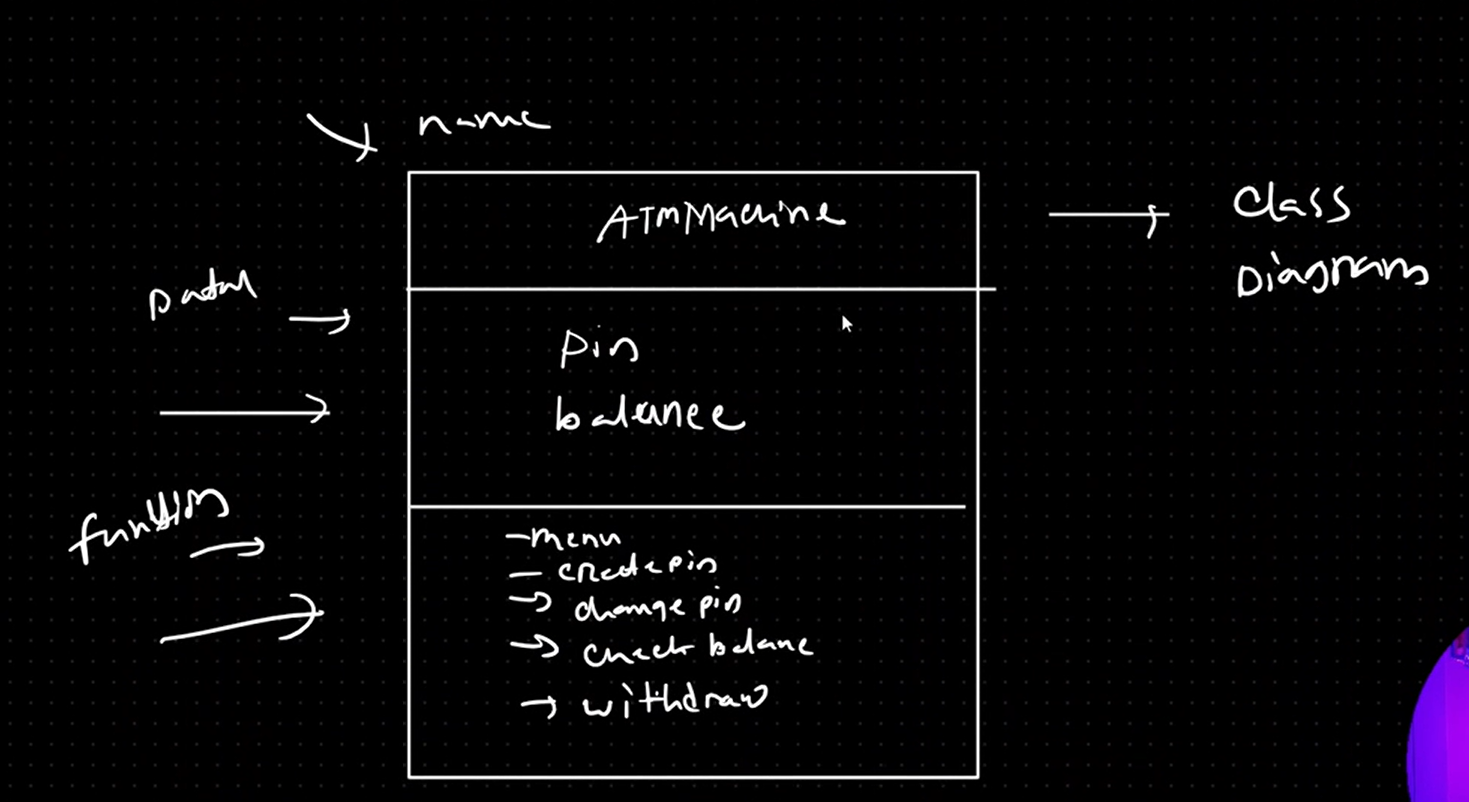 name
ATMMachine
Class
Diagram
Data
pin
balance
function
-menu
- create pin
→ change pin
→ check balane
→ withdraw